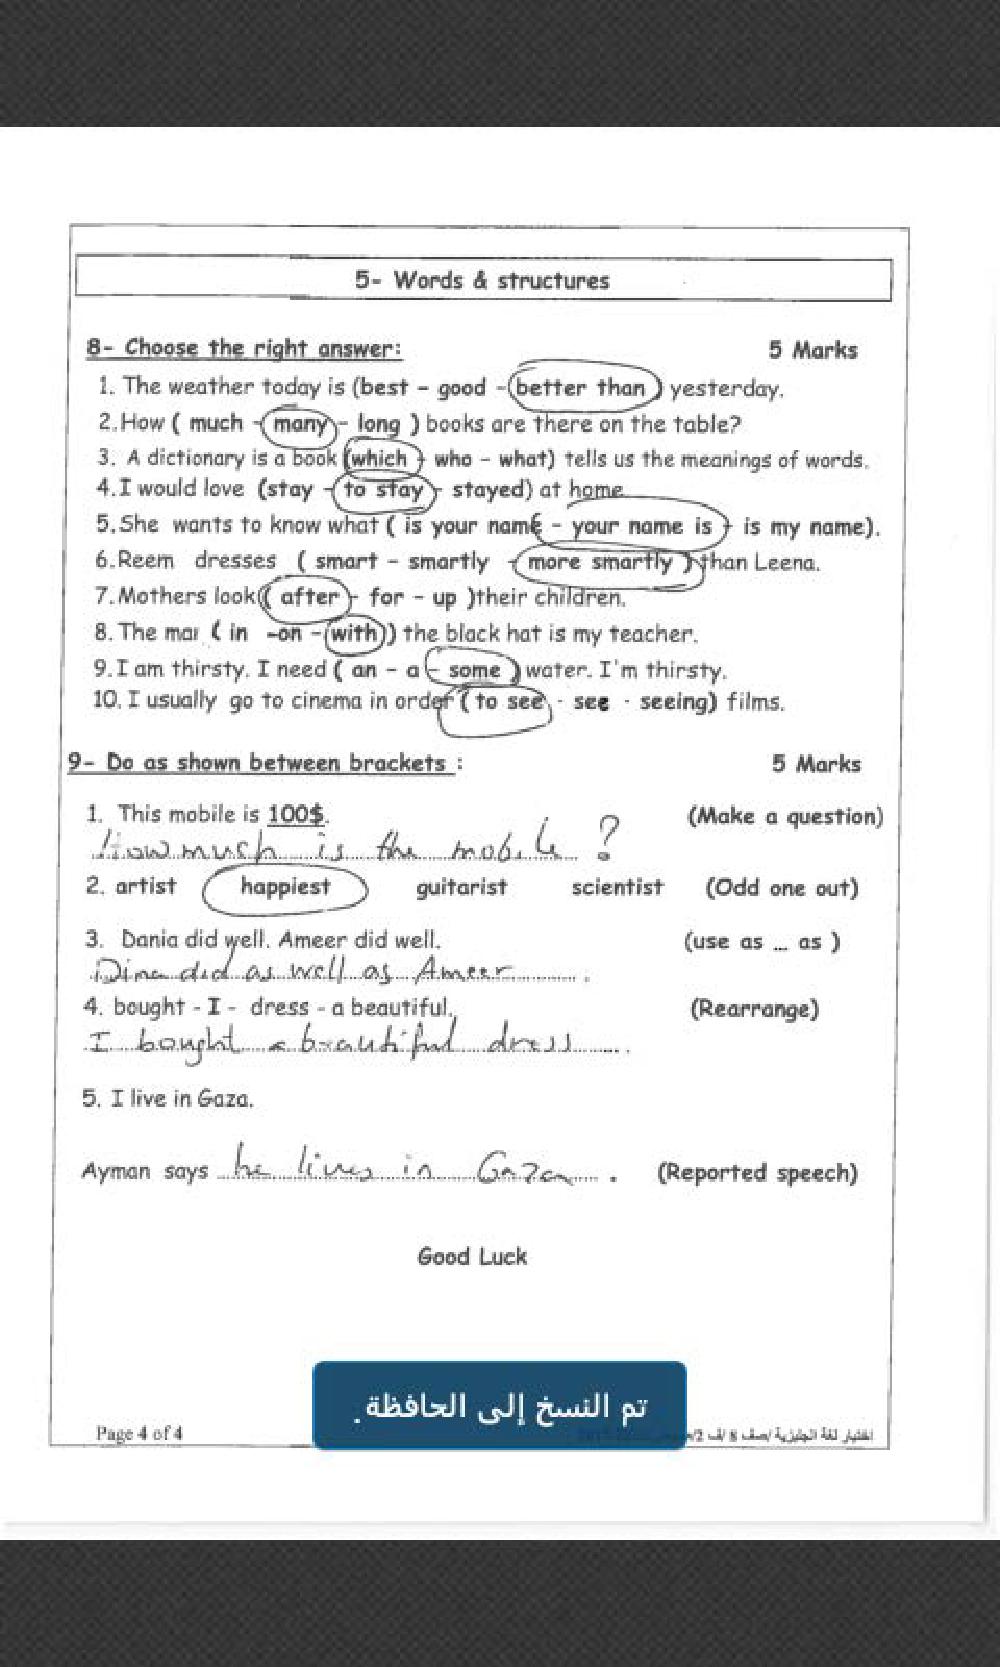 5- Words & structures
8- Choose the right answer: 5 Marks
1. The weather today is (best - good - better than) yesterday.
2. How ( much - many - long ) books are there on the table?
3. A dictionary is a book (which - who - what) tells us the meanings of words.
4. I would love (stay - to stay - stayed) at home
5. She wants to know what ( is your name - your name is - is my name).
6. Reem dresses ( smart - smartly - more smartly ) than Leena.
7. Mothers look ( after - for - up )their children.
8. The mar ( in -on - with) the black hat is my teacher.
9. I am thirsty. I need ( an - a - some ) water. I'm thirsty.
10. I usually go to cinema in order ( to see - see - seeing) films.
9- Do as shown between brackets : 5 Marks
1. This mobile is 100$. (Make a question)
How much is the mobile ?
2. artist happiest guitarist scientist (Odd one out)
3. Dania did well. Ameer did well. (use as ... as )
Dina did as well as Ameer .
4. bought - I - dress - a beautiful. (Rearrange)
I bought a beautiful dress
5. I live in Gaza.
Ayman says he lives in Gaza . (Reported speech)
Good Luck
تم النسخ إلى الحافظة.
Page 4 of 4 اختبار لغة انجليزية /صف 8 /ف 2/